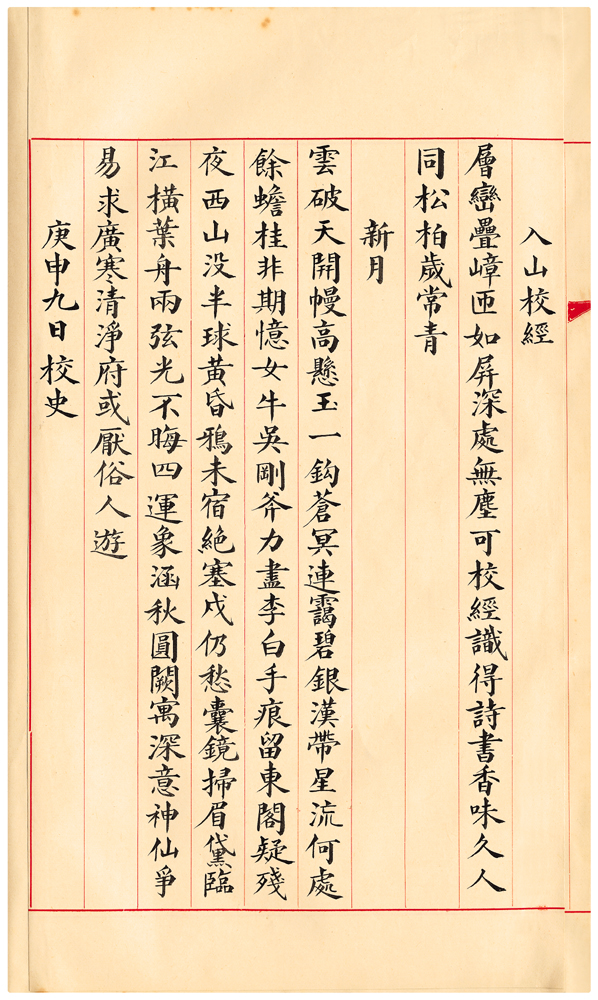 入山校經
層巒疊嶂匝如屏深處無塵可校經識得詩書香味久人
同松柏歲常青
新月
雲破天開幔高懸玉一鈎蒼冥連靄碧銀漢帶星流何處
餘蟾桂非期憶女牛吳剛斧力盡李白手痕留東閣疑殘
夜西山没半球黃昏鴉未宿絕塞戍仍愁囊鏡掃眉黛臨
江橫葉舟兩弦光不晦四運象涵秋圓闕寓深意神仙爭
易求廣寒清淨府或厭俗人遊
庚申九日校史